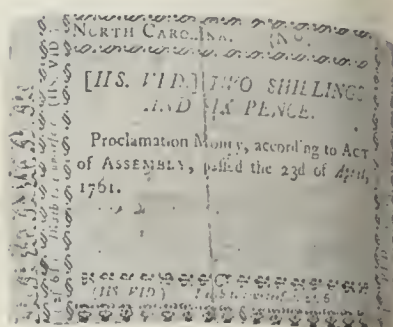 NORTH CAROLINA. (No.
[IIS. VID.] TWO SHILLINGS
AND SIX PENCE.
Proclamation Money, according to ACT
of ASSEMBLY, passed the 23d of April,
1761.
(IIS VID)